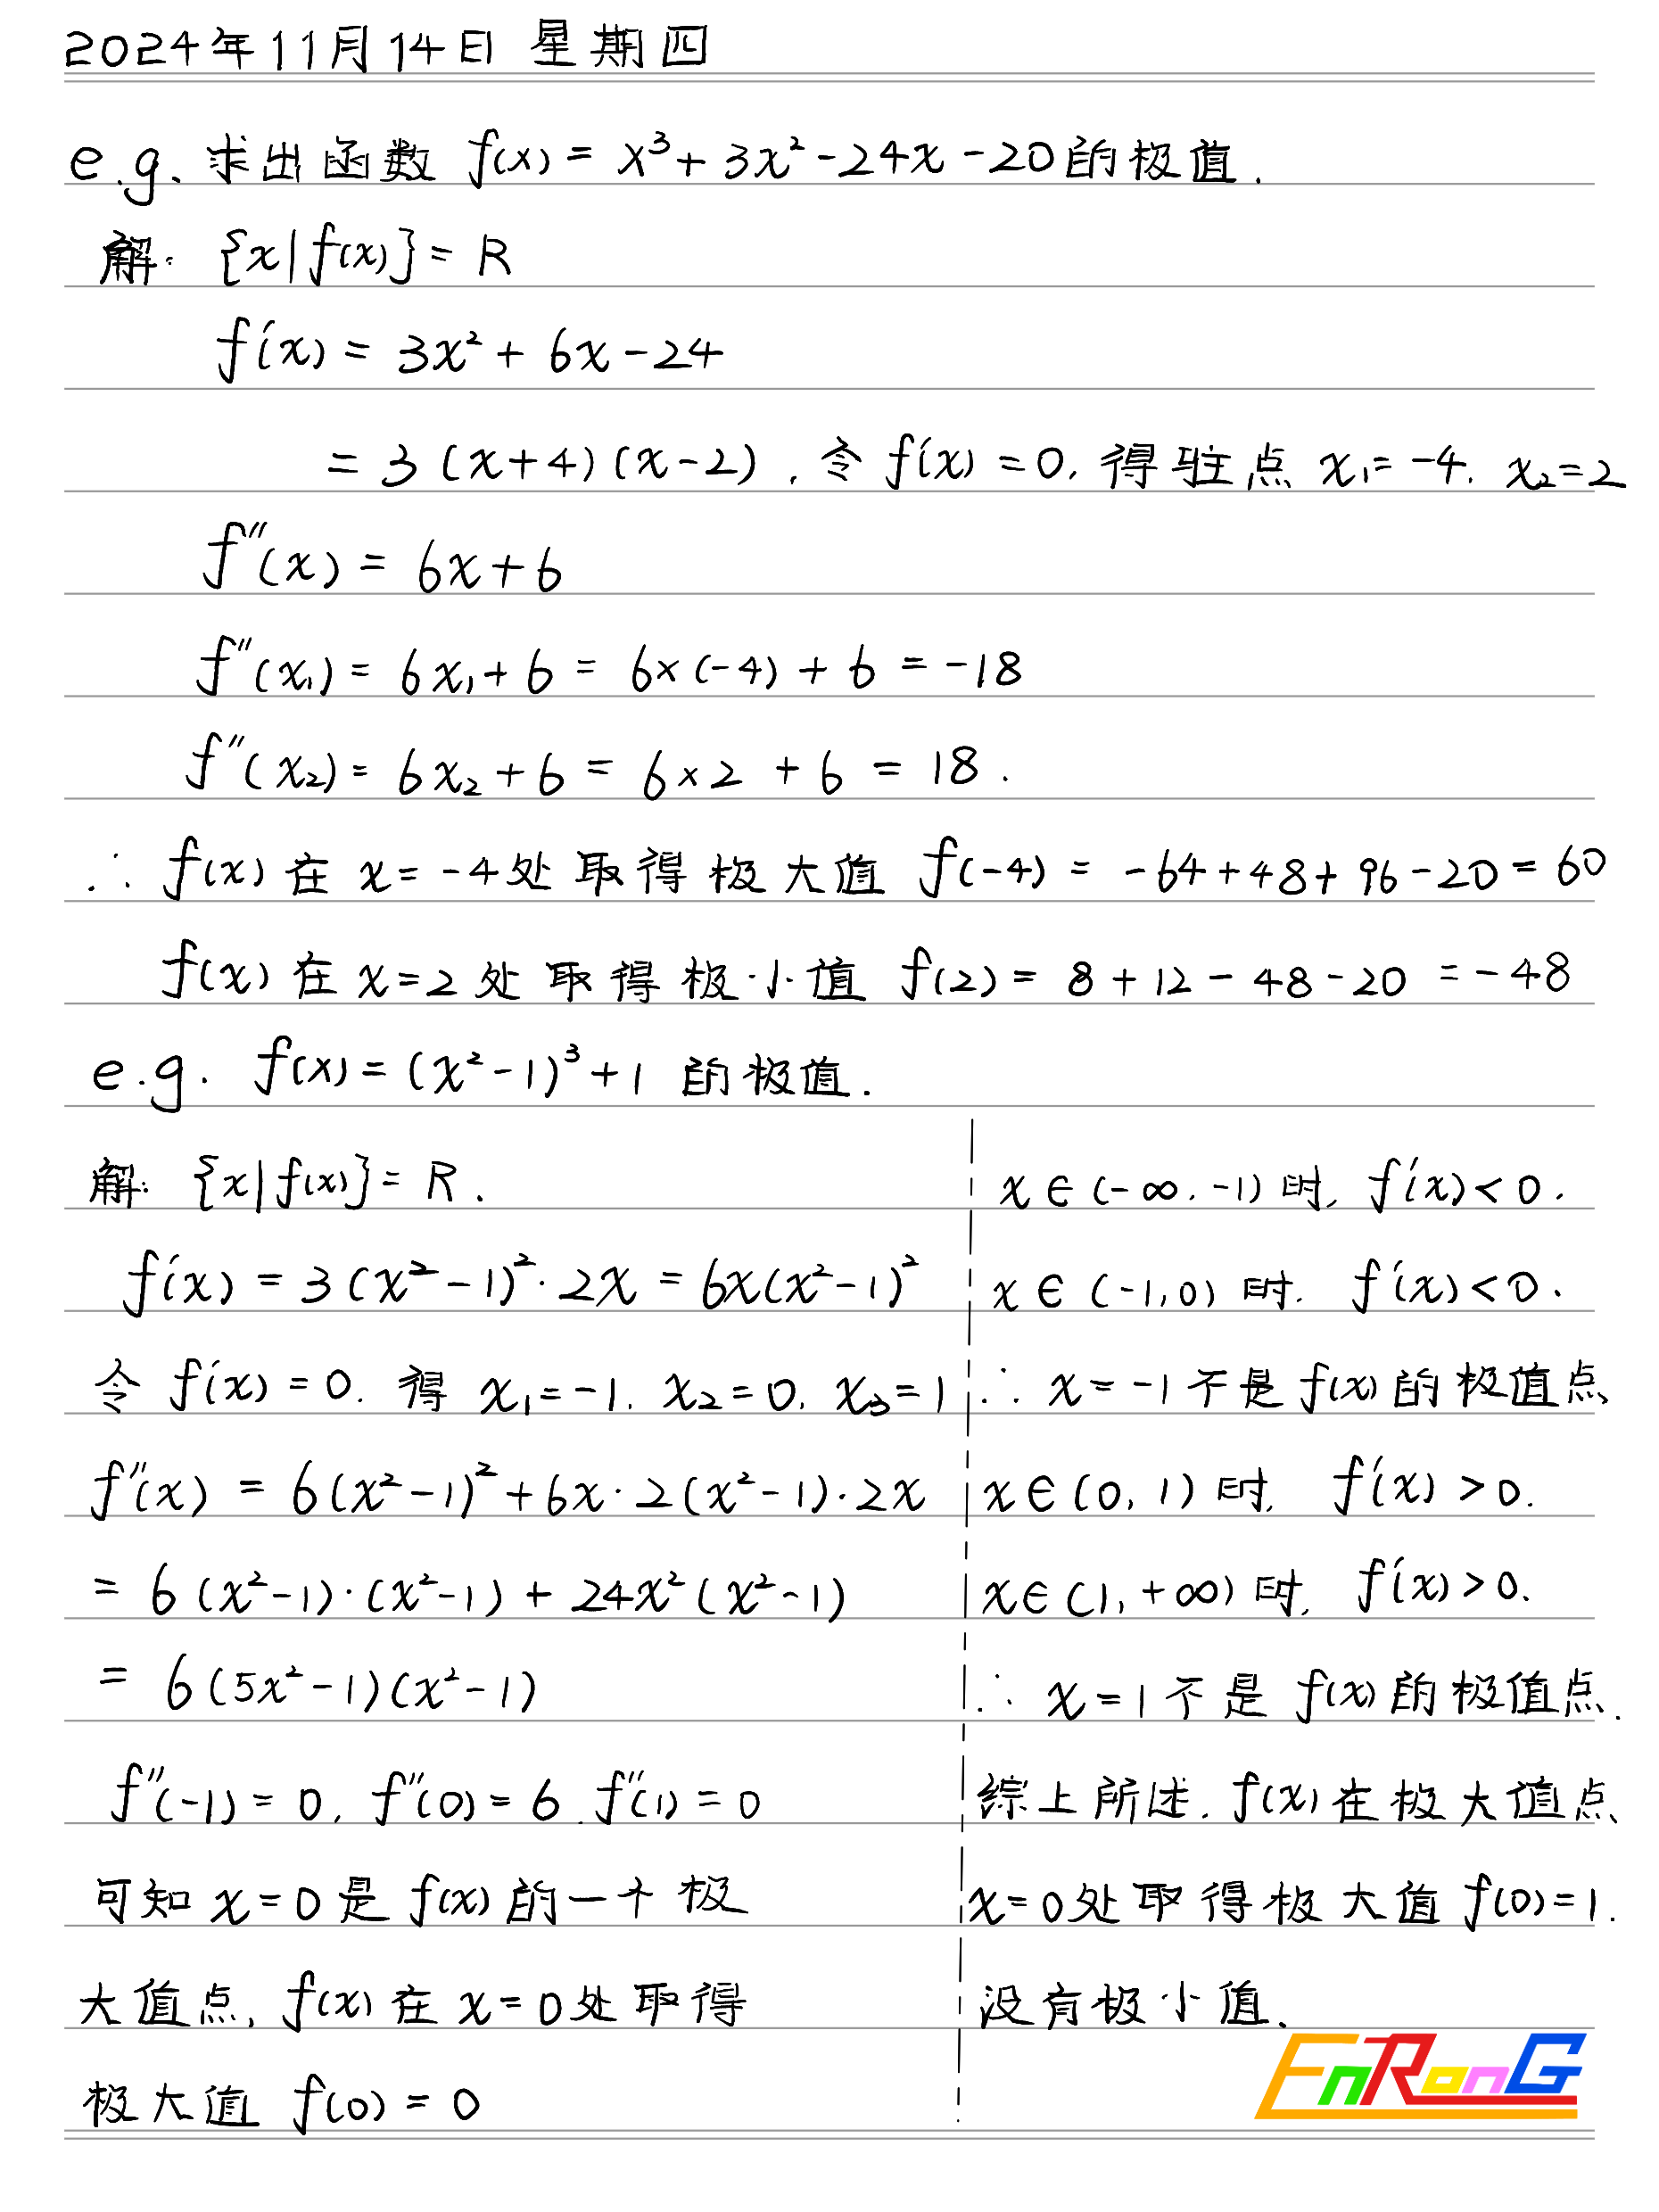 2024年11月14日 星期四
e.g. 求出函数 f(x) = x³ + 3x² - 24x - 20的极值.
解: {x|f(x)} = R
f'(x) = 3x² + 6x - 24
= 3(x+4)(x-2). 令 f'(x) = 0, 得驻点 x₁ = -4, x₂ = 2
f''(x) = 6x + 6
f''(x₁) = 6x₁ + 6 = 6×(-4) + 6 = -18
f''(x₂) = 6x₂ + 6 = 6×2 + 6 = 18.
∴ f(x) 在 x = -4处取得极大值 f(-4) = -64+48+96-20 = 60
f(x) 在 x=2 处取得极小值 f(2) = 8 + 12 - 48 - 20 = -48
e.g. f(x) = (x² - 1)³ + 1 的极值.
解: {x|f(x)} = R.
f'(x) = 3(x² - 1)²·2x = 6x(x² - 1)²
令 f'(x) = 0. 得 x₁ = -1, x₂ = 0, x₃ = 1
f''(x) = 6(x² - 1)² + 6x·2(x² - 1)·2x
= 6(x² - 1)·(x² - 1) + 24x²(x² - 1)
= 6(5x² - 1)(x² - 1)
f''(-1) = 0, f''(0) = 6, f''(1) = 0
可知 x = 0 是 f(x) 的一个极
大值点, f(x) 在 x = 0处取得
极大值 f(0) = 0
x ∈ (-∞, -1) 时, f'(x) < 0.
x ∈ (-1, 0) 时, f'(x) < 0.
∴ x = -1 不是 f(x) 的极值点
x ∈ (0, 1) 时, f'(x) > 0.
x ∈ (1, +∞) 时, f'(x) > 0.
∴ x = 1 不是 f(x) 的极值点.
综上所述, f(x) 在极大值点
x = 0处取得极大值 f(0) = 1.
没有极小值.
EnRonG